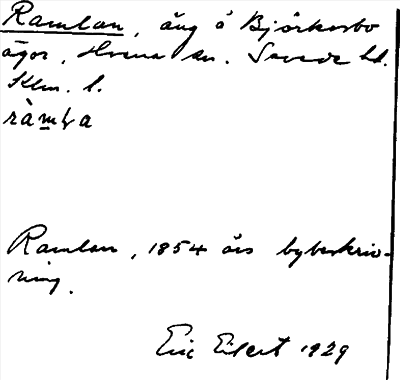 Ramlan, äng å Björkesbo
ägor, Hvena sn. Sevede hd.
Klm. l.
ràmɫa
Ramlan, 1854 års bybeskriv-
ning.
Eric Eilert 1929